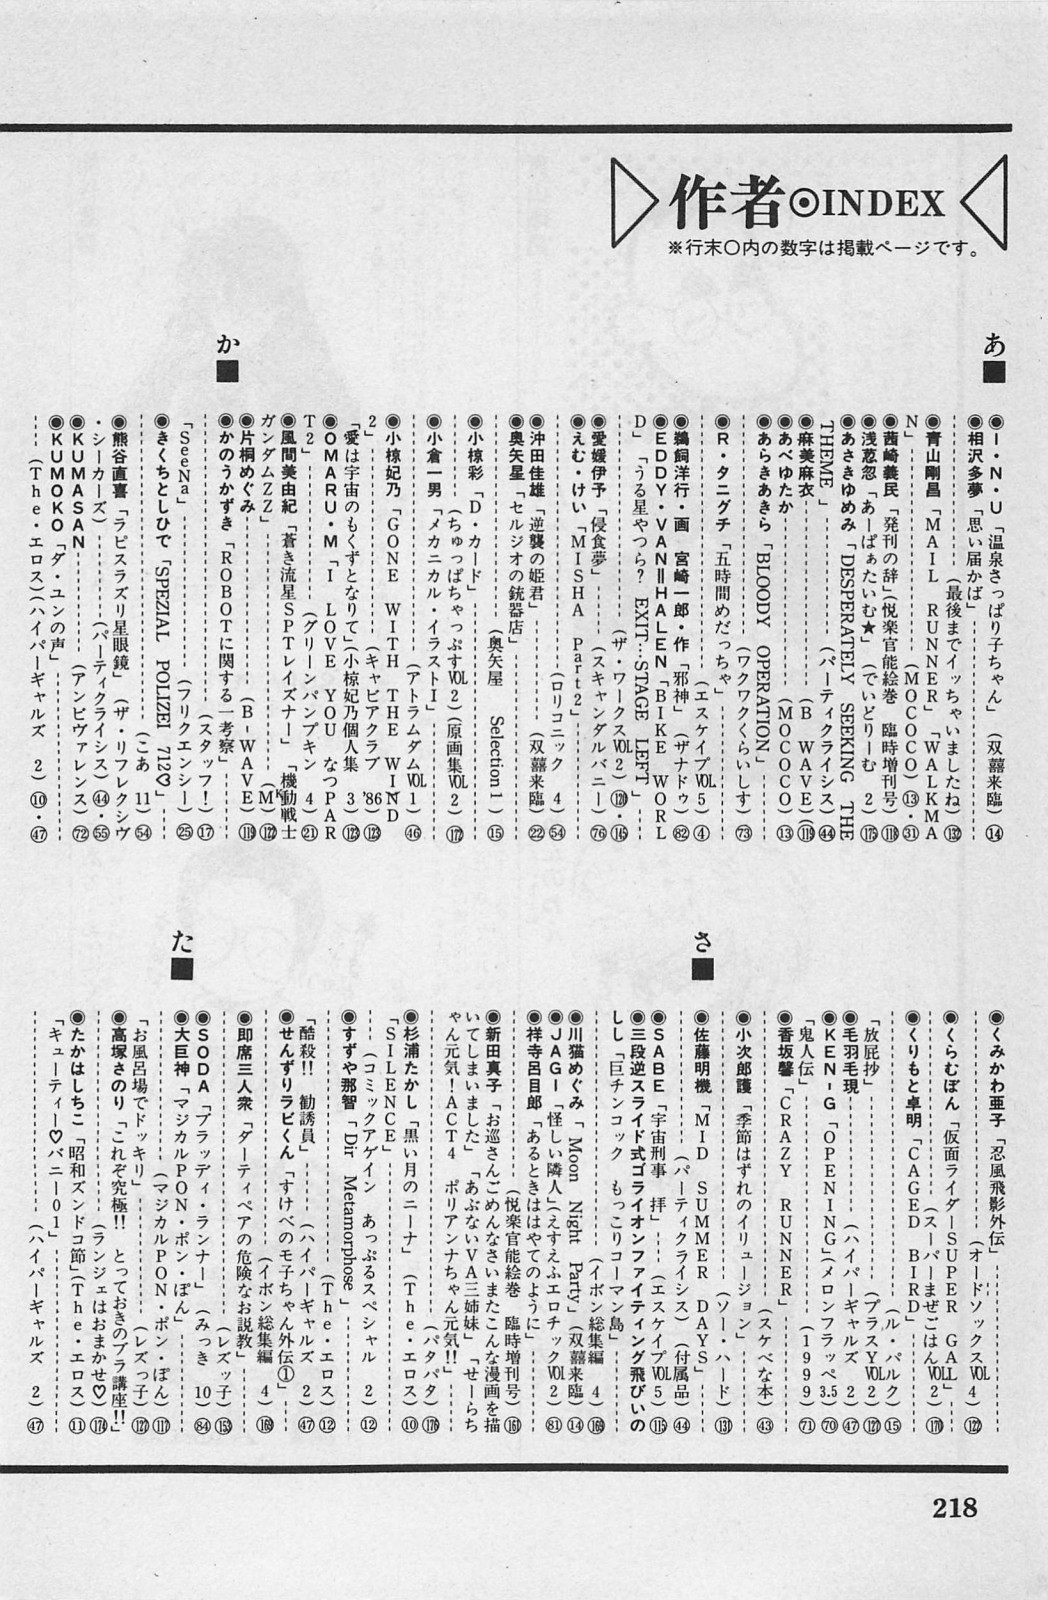 作者⊙INDEX
※行末○内の数字は掲載ページです。
あ■
◉I・N・U「温泉さっぱり子ちゃん」(双囍来臨)⑭
◉相沢多夢「思い届かば」
(最後までイッちゃいましたね)(132)
◉青山剛昌「MAIL RUNNER」「WALKMA
N」(MOCOCO)⑬・㉛
◉茜崎義民「発刊の辞」(悦楽官能絵巻 臨時増刊号)(118)
◉浅葱忽「あーぱぁたいむ★」(でいどりーむ 2)(175)
◉あさきゆめみ「DESPERATELY SEEKING THE
THEME」(パーティクライシス)㊹
◉麻美麻衣(B WAVE)(119)
◉あべゆたか(MOCOCO)⑬
◉あらきあきら「BLOODY OPERATION」
(ワクワクくらいしす)(73)
◉R・タニグチ「五時間めだっちゃ」
(エスケイプVOL5)④
◉鵜飼洋行・画 宮崎一郎・作「邪神」(ザナドゥ)(82)
◉EDDY・VAN=HALEN「BIKE WORL
D」「うる星やつら? EXIT…STAGE LEFT」
(ザ・ワークスVOL2)(120)・(165)
◉愛媛伊予「侵食夢」(スキャンダルバニー)(76)
◉えむ・けい「MISHA Part2」
(ロリコニック 4)(54)
◉沖田佳雄「逆襲の姫君」(双囍来臨)㉒
◉奥矢星「セルジオの銃器店」
(奥矢屋 Selection 1)⑮
◉小椋彩「D・カード」
(ちゅっぱちゃっぷすVOL2)(原画集VOL2)(172)
◉小倉一男「メカニカル・イラストI」
(アトラムダムVOL1)㊻
◉小椋妃乃「GONE WITH THE WIND
2」(キャビアクラブ '86)(123)
「愛は宇宙のもくずとなりて」(小椋妃乃個人集 3)(123)
◉OMARU・M「I LOVE YOU なつPAR
T2」(グリーンパンプキン 4)㉑
◉風間美由紀「蒼き流星SPTレイズナー」「機動戦士
ガンダムZZ」(MK)(122)
か■
◉片桐めぐみ(B-WAVE)(119)
◉かのうかずき「ROBOTに関する一考察」
(スタッフ!)⑰
「SeeNa」(フリクエンシー)㉕
◉きくちとしひで「SPEZIAL POLIZEI 712♡」
(こあ 11)(54)
◉熊谷直喜「ラピスラズリ星眼鏡」(ザ・リフレクシヴ
・シーカーズ)(パーティクライシス)㊹・(55)
◉KUMASAN(アンビヴァレンス)(72)
◉KUMOKO「ダ・ユンの声」
(The・エロス)(ハイパーギャルズ 2)⑩・㊼
◉くみかわ亜子「忍風飛影外伝」
(オードソックスVOL4)(122)
◉くらむぼん「仮面ライダーSUPER GAL」
(スーパーまぜごはんVOL2)(170)
◉くりもと卓明「CAGED BIRD」
(ル・パルク)⑮
「放屁抄」(プラスYVOL2)(121)
◉毛羽毛現(ハイパーギャルズ 2)㊼
◉KEN-G「OPENING」(メロンフラッペ3.5)(70)
「鬼人伝」(1999)(71)
◉香坂馨「CRAZY RUNNER」
(スケベな本)㊸
◉小次郎護「季節はずれのイリュージョン」
(ソー・ハード)(131)
さ■
◉佐藤明機「MID SUMMER DAYS」
(パーティクライシス)(付属品)㊹
◉SABE「宇宙刑事 拝」(エスケイプVOL5)(115)
◉三段逆スライド式ゴライオンファイティング飛びいの
しし「巨チンコック もっこりコーマン島」
(イボン総集編 4)(169)
◉川猫めぐみ「Moon Night Party」(双囍来臨)⑭
◉JAGI「怪しい隣人」(えすえふエロチックVOL2)(81)
◉祥寺呂目郎「あるときははやてのように」
(悦楽官能絵巻 臨時増刊号)(161)
◉新田真子「お巡さんごめんなさいまたこんな漫画を描
いてしまいました」「あぶないVA三姉妹」「せーらち
ゃん元気!ACT4 ポリアンナちゃん元気!!」
(パタパタ)(176)
◉杉浦たかし「黒い月のニーナ」(The・エロス)⑩
「SILENCE」
(コミックアゲイン あっぷるスペシャル 2)⑫
◉すずや那智「Dir Metamorphose」
(The・エロス)⑫
「酷殺!! 勧誘員」(ハイパーギャルズ 2)㊼
◉せんずりラビくん「すけべのモ子ちゃん外伝①」
(イボン総集編 4)(169)
◉即席三人衆「ダーティペアの危険なお説教」
(レズッ子)(153)
◉SODA「ブラッディ・ランナー」(みっき 10)(84)
た■
◉大巨神「マジカルPON・ポン・ぽん」
(マジカルPON・ポン・ぽん)(117)
「お風呂場でドッキリ」(レズっ子)(122)
◉高塚さのり「これぞ究極!! とっておきのブラ講座!!」
(ランジェはおまかせ♡)(174)
◉たかはしちこ「昭和ズンドコ節」(The・エロス)⑪
「キューティー♡バニー01」
(ハイパーギャルズ 2)㊼
218